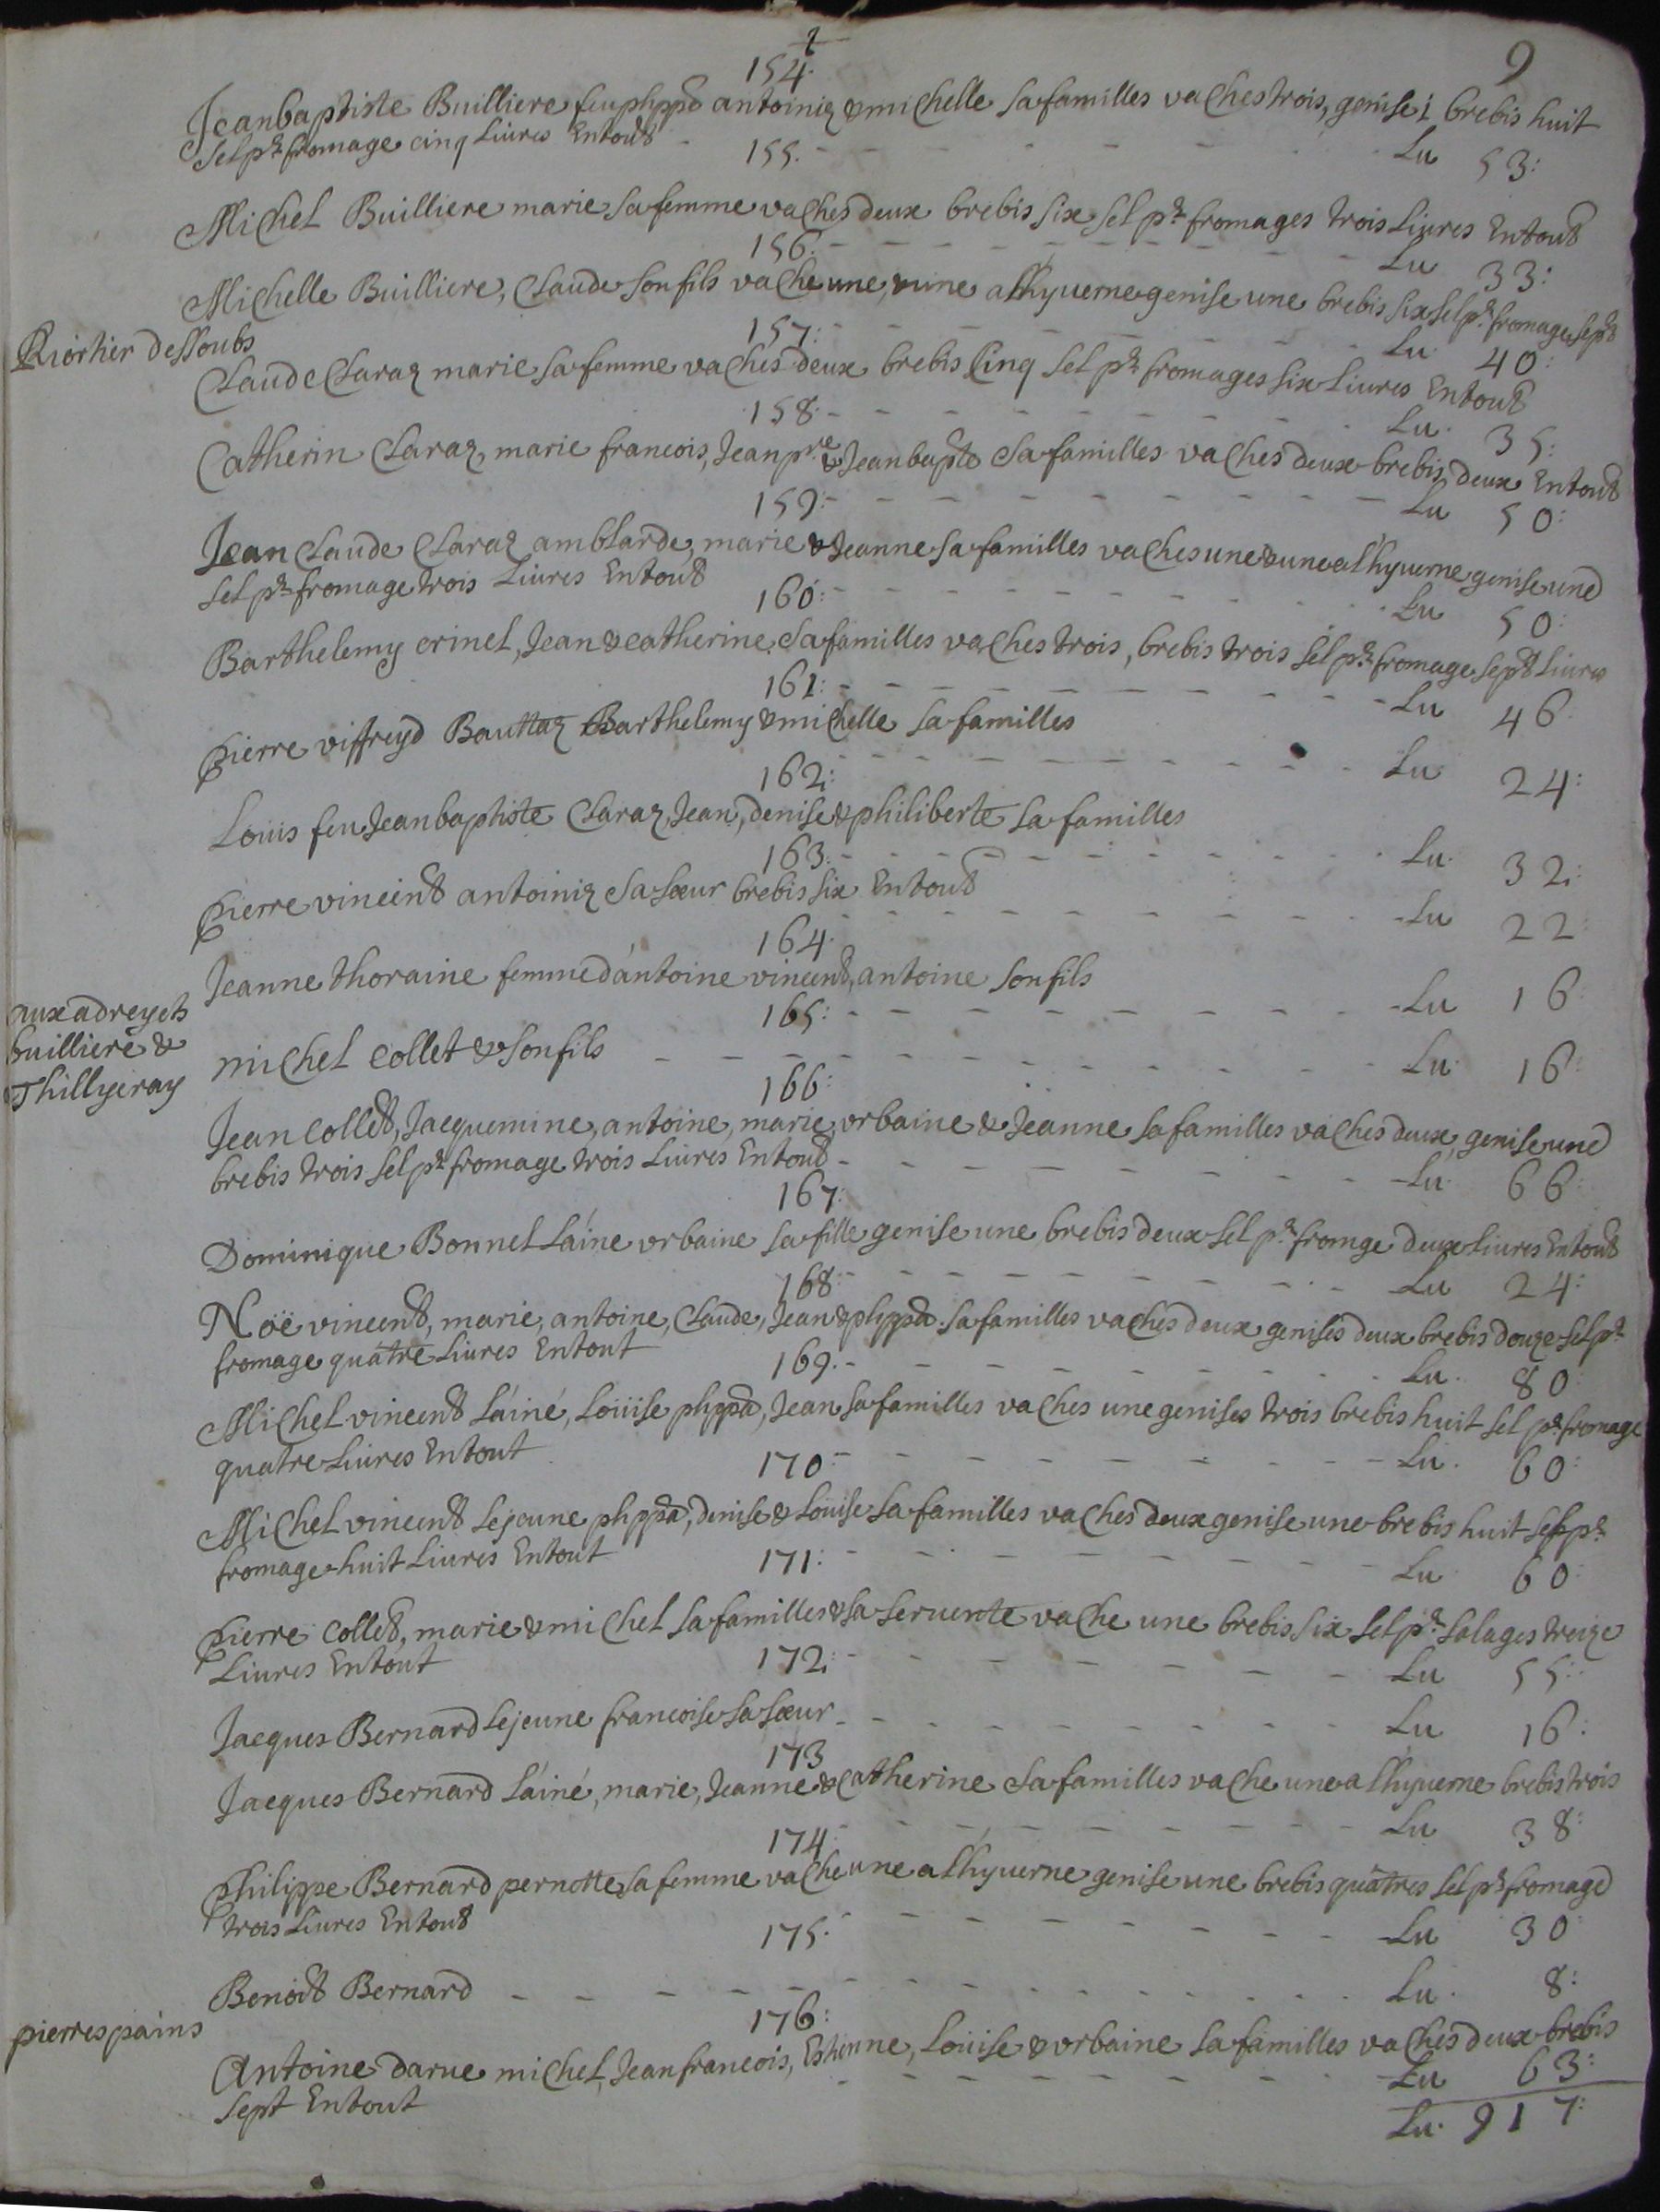 9
154.
Jeanbaptiste Builliere feu phppe antoiniz & michelle sa familles vaches trois, genise i brebis huit
sel pr fromage cinq Liures Entout - Lu 53:
155.
Michel Builliere marie sa femme vaches deux brebis six sel pr fromages trois Liures Entout
Lu 33:
156.
Michelle Builliere, Claude son fils vache une, & une a lhyuerne genise une brebis six sel pr fromage sept
Lu 40:
157:
Riortier dessoubs
Claude Claraz marie sa femme vaches deux brebis Cinq sel pr fromages six Liures Entout
Lu. 35:
158.
Catherin Claraz, marie francois, Jean pre & Jeanbapte sa familles vaches deux brebis deux Entout
Lu 50:
159:
Jean Claude Claraz amblarde, marie & Jeanne sa familles vaches une & une a lhyuerne genise une
sel pr fromage trois Liures Entout Lu 50:
160:
Barthelemy crinel, Jean & catherine sa familles vaches trois, brebis trois sel pr fromage sept Liures
Lu 46
161:
Pierre viffreyd Bauttaz Barthelemy & michelle sa familles
Lu 24:
162:
Louis feu Jeanbaptiste Claraz, Jean, denise & philiberte sa familles
Lu. 32:
163:
Pierre vincent antoiniz sa soeur brebis six Entout
Lu 22:
164.
Jeanne thoraine femme d'antoine vincent, antoine son fils
Lu 16
165:
aux adreyets
builliere &
Thillyeray
michel Collet & son fils - Lu. 16:
166:
Jean Collet, Jacquemine, antoine, marie, vrbaine & Jeanne sa familles vaches deux, genise une
brebis trois sel pr fromage trois Liures Entout - Lu. 66:
167:
Dominique Bonnel L'aine vrbaine sa fille genise une brebis deux sel pr fromge deux Liures Entout
Lu 24:
168:
Noë vincent, marie, antoine, Claude, Jean & phppa. sa familles vaches deux genises deux brebis douze sel pr
fromage quatre Liures Entout Lu. 80:
169.
Michel vincent L'ainé, Louise phppa, Jean sa familles vaches une genises trois brebis huit sel pr fromage
quatre Liures Entout Lu. 60:
170:
Michel vincent Lejeune phppa, denise & Louise sa familles vaches deux genise une brebis huit sel pr
fromage huit Liures Entout Lu 60:
171:
Pierre Collet, marie & michel sa familles & sa seruente vache une brebis six sel pr salages treize
Liures Entout Lu 55:
172:
Jacques Bernard Lejeune francoise sa soeur - Lu 16:
173
Jacques Bernard L'ainé, marie, Jeanne & Catherine sa familles vache une a lhyuerne brebis trois
Lu 38:
174:
Philippe Bernard pernotte sa femme vache une a lhyuerne genise une brebis quatres sel pr fromage
trois Liures Entout Lu 30
175.
Benoit Bernard - Lu. 8:
176:
pierrespains
Antoine darue michel, Jean francois, Estienne, Louise & vrbaine sa familles vaches deux brebis
sept Entout Lu 63:
Lu. 917: